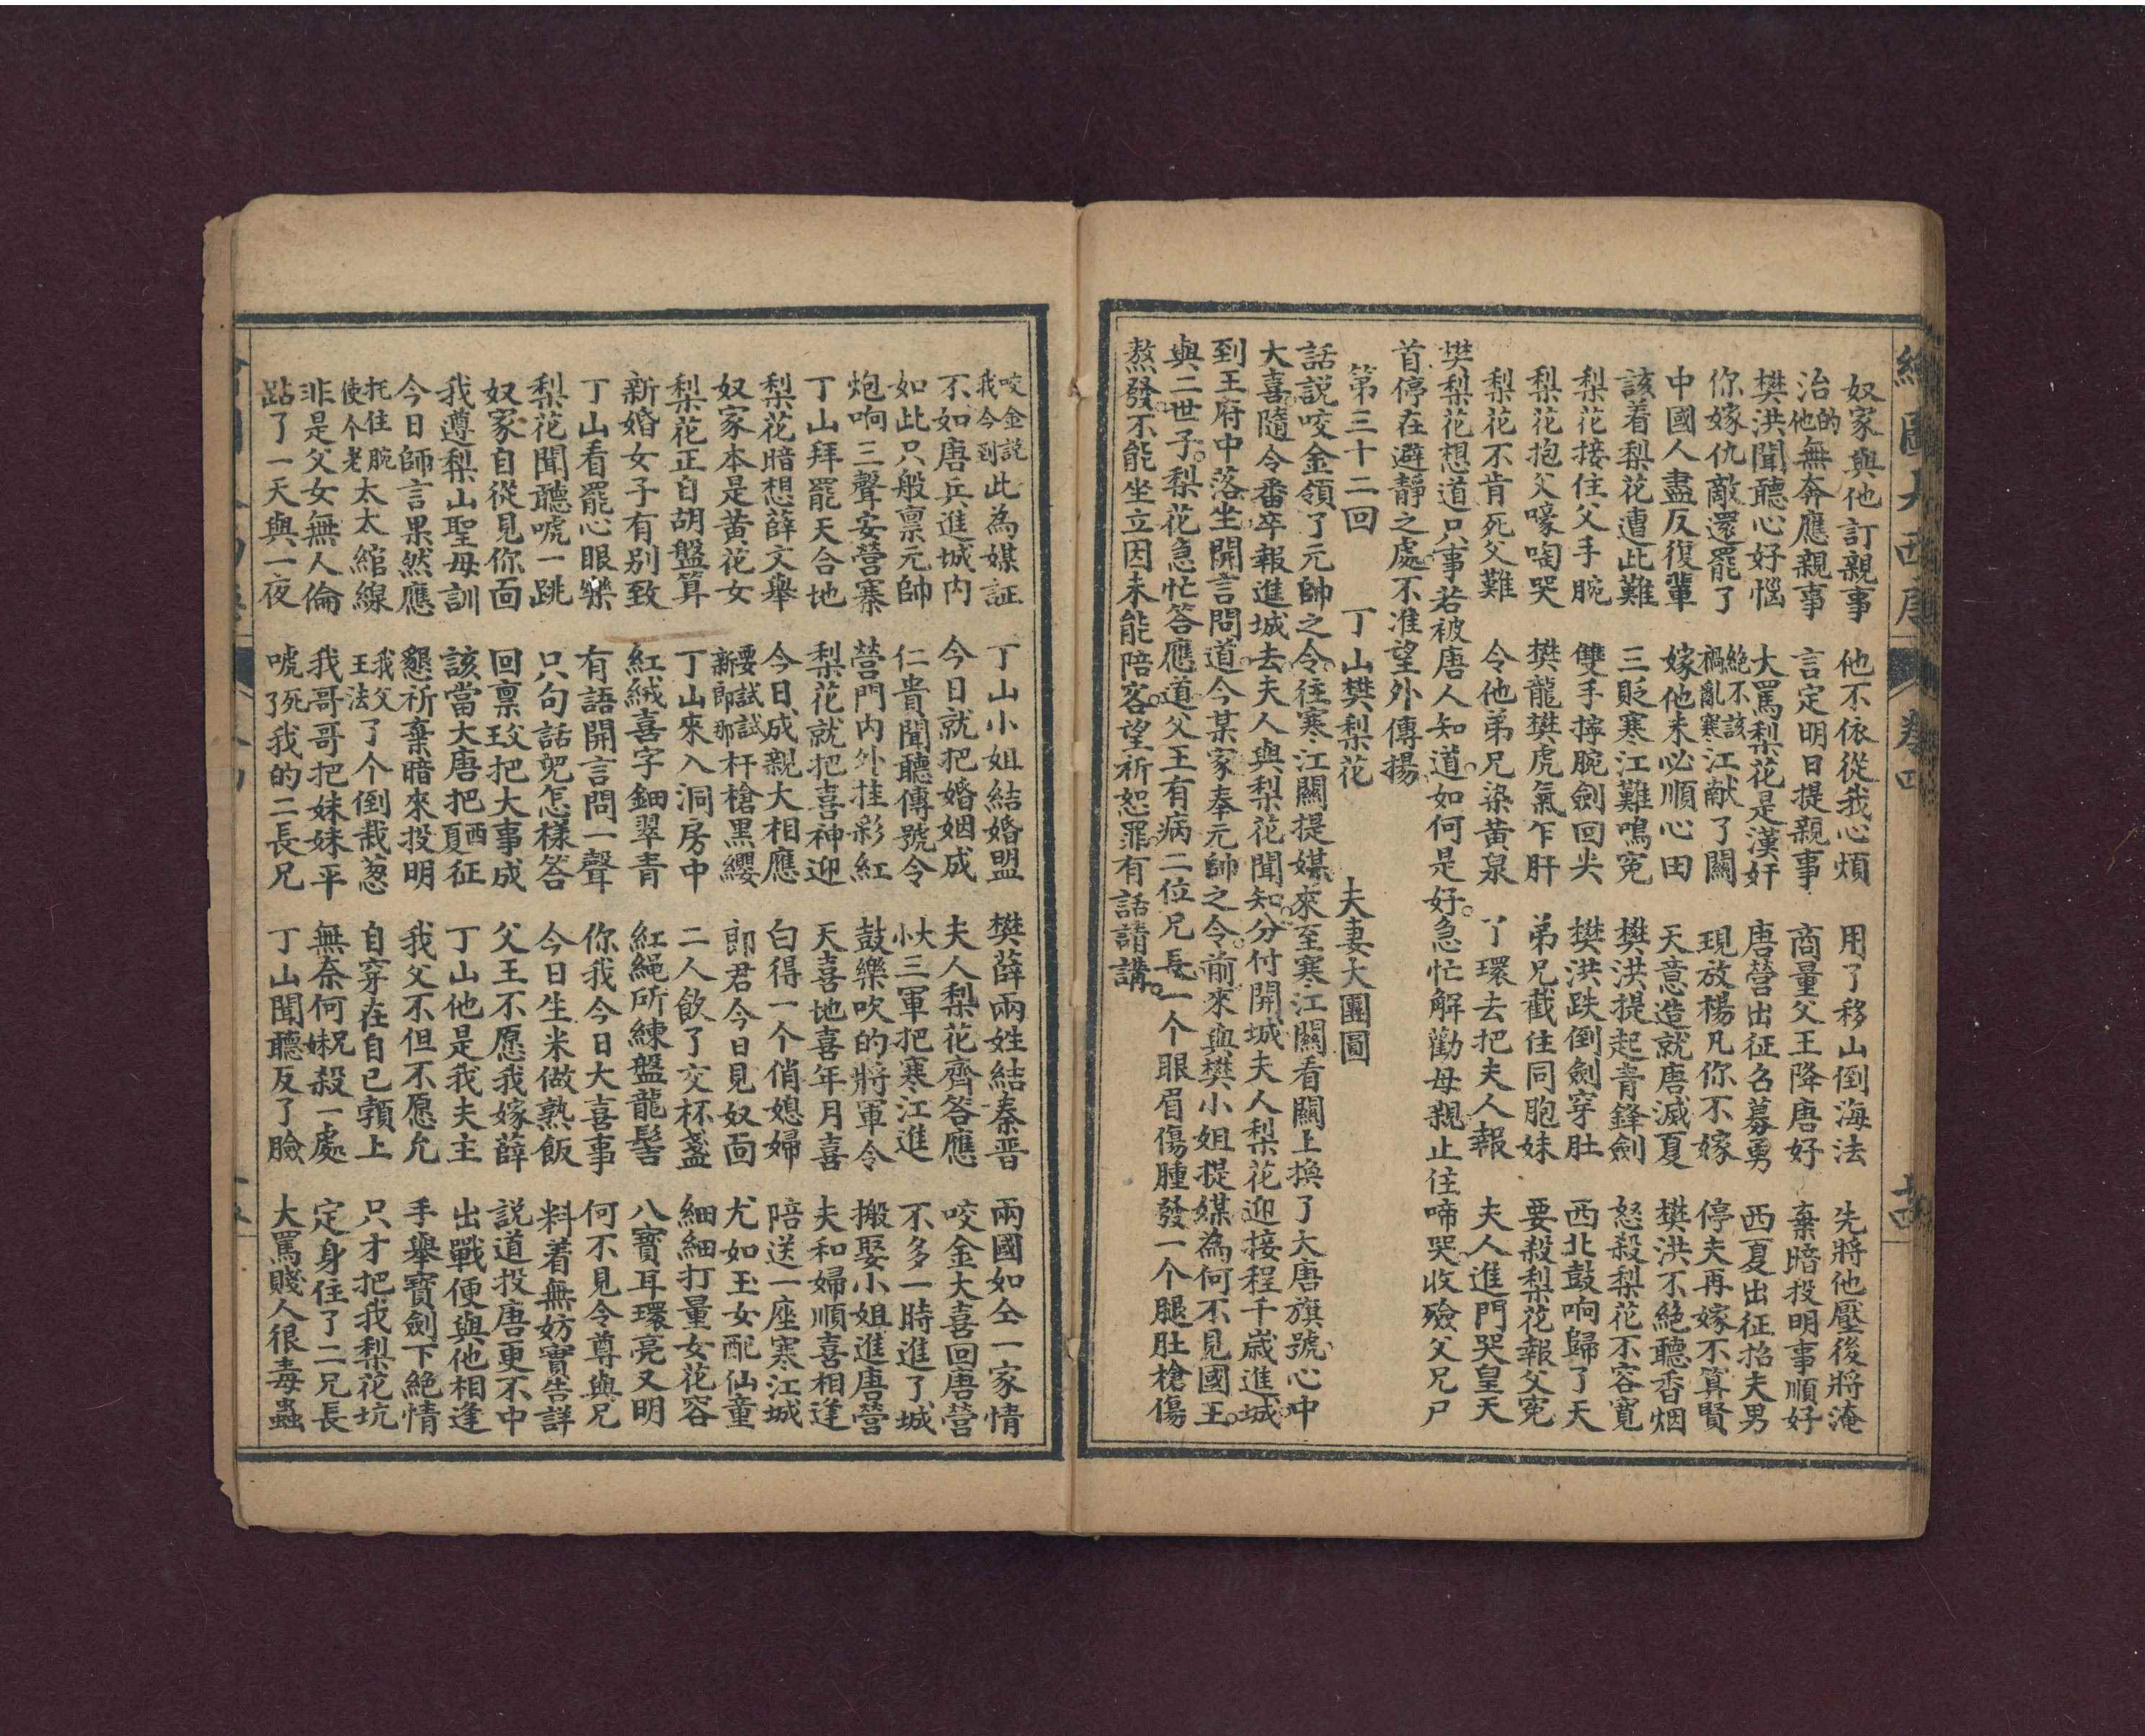 繪圖 西唐 卷四 十四
奴家與他訂親事 他不依從我心煩 用了移山倒海法 先將他壓後將淹
治的他無奈應親事 言定明日提親事 商量父王降唐好 棄暗投明事順好
樊洪聞聽心好惱 大罵梨花是漢奸 唐營出征名募勇 西夏出征招夫男
你嫁仇敵還罷了 絕不該禍亂寒江献了關 現放楊凡你不嫁 停夫再嫁不算賢
中國人盡反復輩 嫁他未必順心田 天意造就唐滅夏 樊洪不絕聽香烟
該着梨花遭此難 三貶寒江難鳴冤 樊洪提起青鋒劍 怒殺梨花不容寬
梨花接住父手腕 雙手擰腕劍回尖 樊洪跌倒劍穿肚 西北鼓响歸了天
梨花抱父嚎啕哭 樊龍樊虎氣乍肝 弟兄截住同胞妹 要殺梨花報父冤
梨花不肯死父難 令他弟兄染黃泉 丫環去把夫人報 夫人進門哭皇天
樊梨花想道只事若被唐人知道如何是好。急忙解勸母親止住啼哭收殮父兄尸
首停在避靜之處不准望外傳揚
第三十二回 丁山樊梨花 夫妻大團圓
話說咬金領了元帥之令往寒江關提媒來至寒江關看關上換了大唐旗號心中
大喜隨令番卒報進城去夫人與梨花聞知分付開城夫人梨花迎接程千歲進城
到王府中落坐開言問道今某家奉元帥之令。前來與樊小姐提媒為何不見國王
與二世子。梨花急忙答應道父王有病二位兄長一个眼眉傷腫發一个腿肚槍傷
熬發不能坐立因未能陪客。望祈恕罪有話請講。
咬金説我今到此為媒証 丁山小姐結婚盟 樊薛兩姓結秦晋 兩國如仝一家情
不如唐兵進城內 今日就把婚姻成 夫人梨花齊答應 咬金大喜回唐營
如此只般禀元帥 仁貴聞聽傳號令 大小三軍把寒江進 不多一時進了城
炮响三聲安營寨 營門內外挂彩紅 鼓樂吹的將軍令 搬娶小姐進唐營
丁山拜罷天合地 梨花就把喜神迎 天喜地喜年月喜 夫和婦順喜相逢
梨花暗想薛文舉 今日成親大相應 白得一个俏媳婦 陪送一座寒江城
奴家本是黃花女 要試試新郎那杆槍黑纓 郎君今日見奴面 尤如玉女配仙童
梨花正自胡盤算 丁山來入洞房中 二人飲了交杯盞 細細打量女花容
新婚女子有别致 紅絨喜字鈿翠青 紅繩所練盤龍髻 八寶耳環亮又明
丁山看罷心眼樂 有語開言問一聲 你我今日大喜事 何不見令尊與兄
梨花聞聽唬一跳 只句話況怎樣答 今日生米做熟飯 料着無妨實告詳
奴家自從見你面 回禀玟把大事成 父王不愿我嫁薛 説道投唐更不中
我遵梨山聖母訓 該當大唐把西夏征 丁山他是我夫主 出戰便與他相逢
今日師言果然應 懇祈棄暗來投明 我父不但不愿允 手舉寶劍下絕情
托住腕使个老太太綰線 我父王法了个倒栽葱 自穿在自己顙上 只才把我梨花坑
非是父女無人倫 我哥哥把妹妹平 無奈何殺一處 定身住了二兄長
跕了一天與一夜 唬死了我的二長兄 丁山聞聽反了臉 大罵賤人很毒蟲